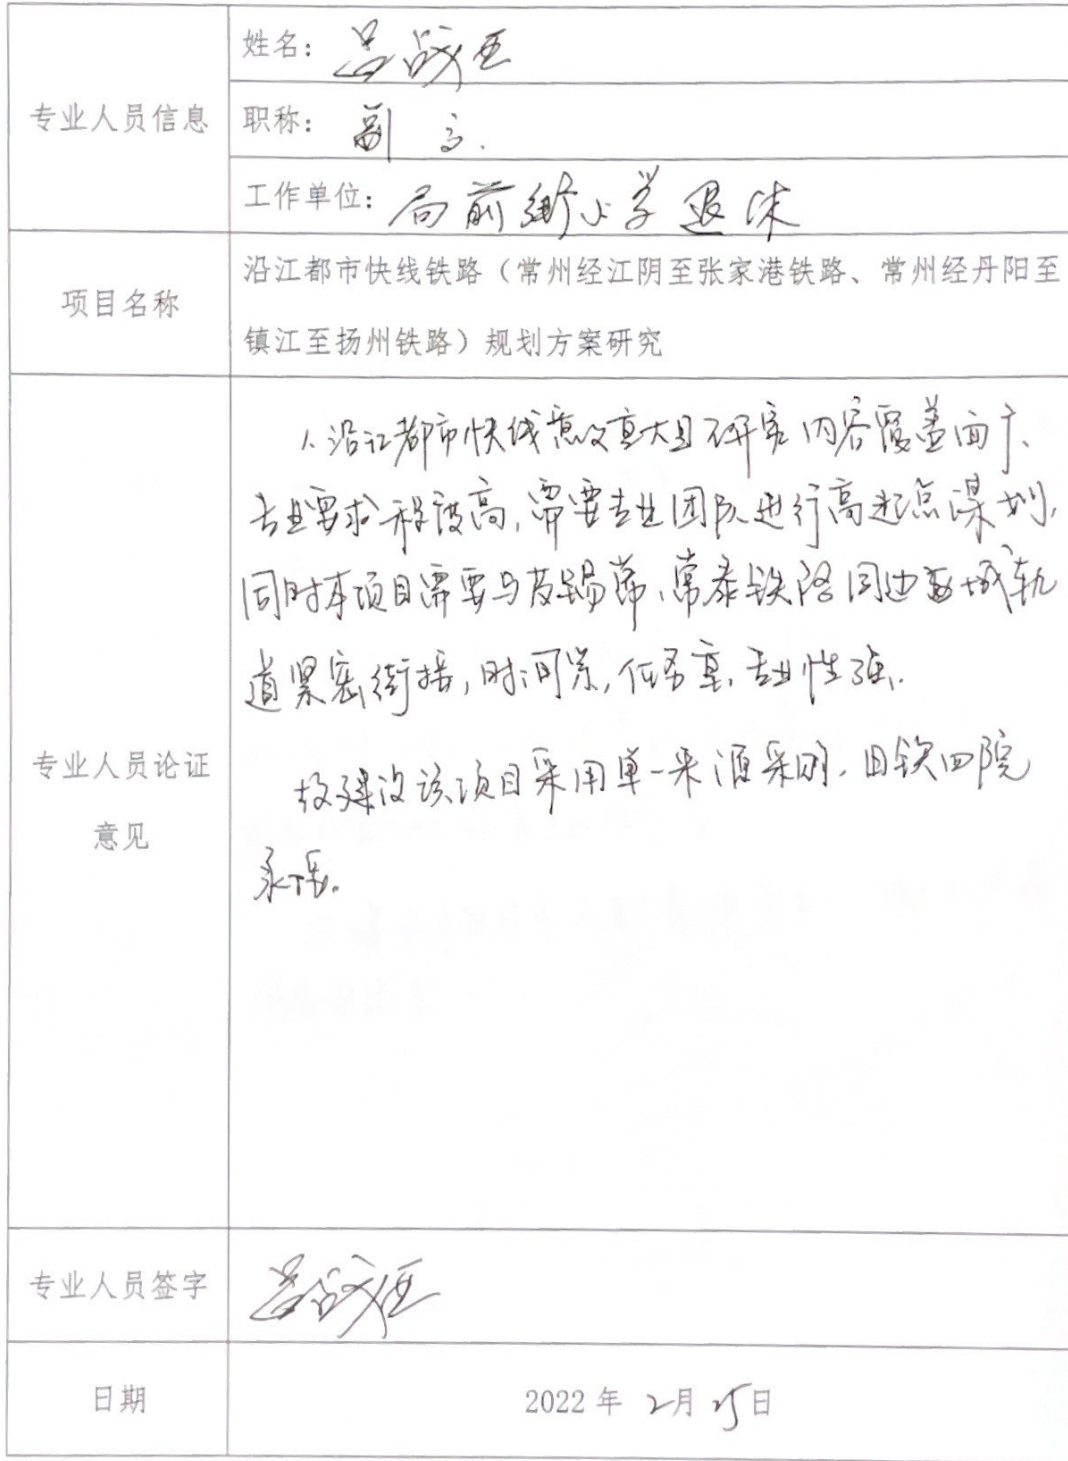 专业人员信息
姓名：吕战亚
职称：副高.
工作单位：局前街小学退休
项目名称
沿江都市快线铁路（常州经江阴至张家港铁路、常州经丹阳至
镇江至扬州铁路）规划方案研究
专业人员论证
意见
1.沿江都市快线意义重大且研究内容覆盖面广、
专业要求程度高,需要专业团队进行高起点谋划,
同时本项目需要与及锡常、常泰铁路周边区域轨
道紧密衔接,时间紧,任务重、专业性强.
故建议该项目采用单一来源采购,由铁四院
承担。
专业人员签字
吕战亚
日期
2022年2月25日